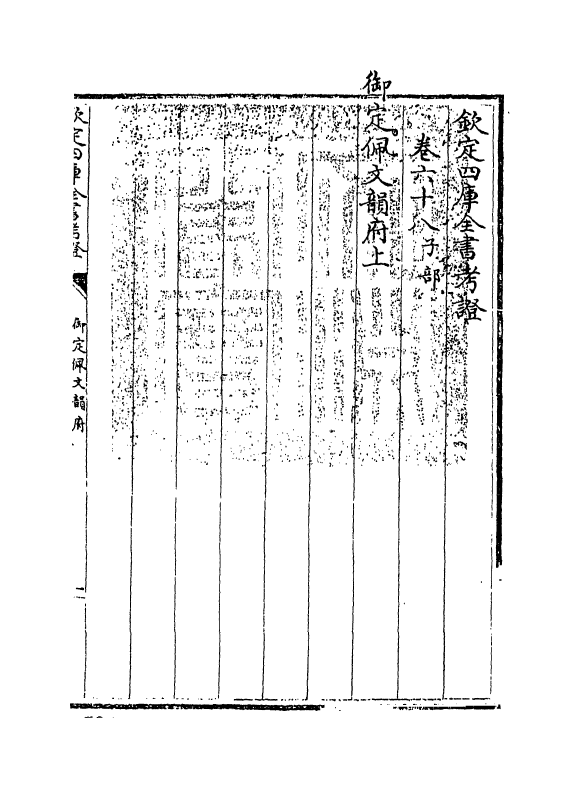 欽定四庫全書考證
卷六十八子部
御定佩文韻府上
欽定四庫全書考證
御定佩文韻府
二